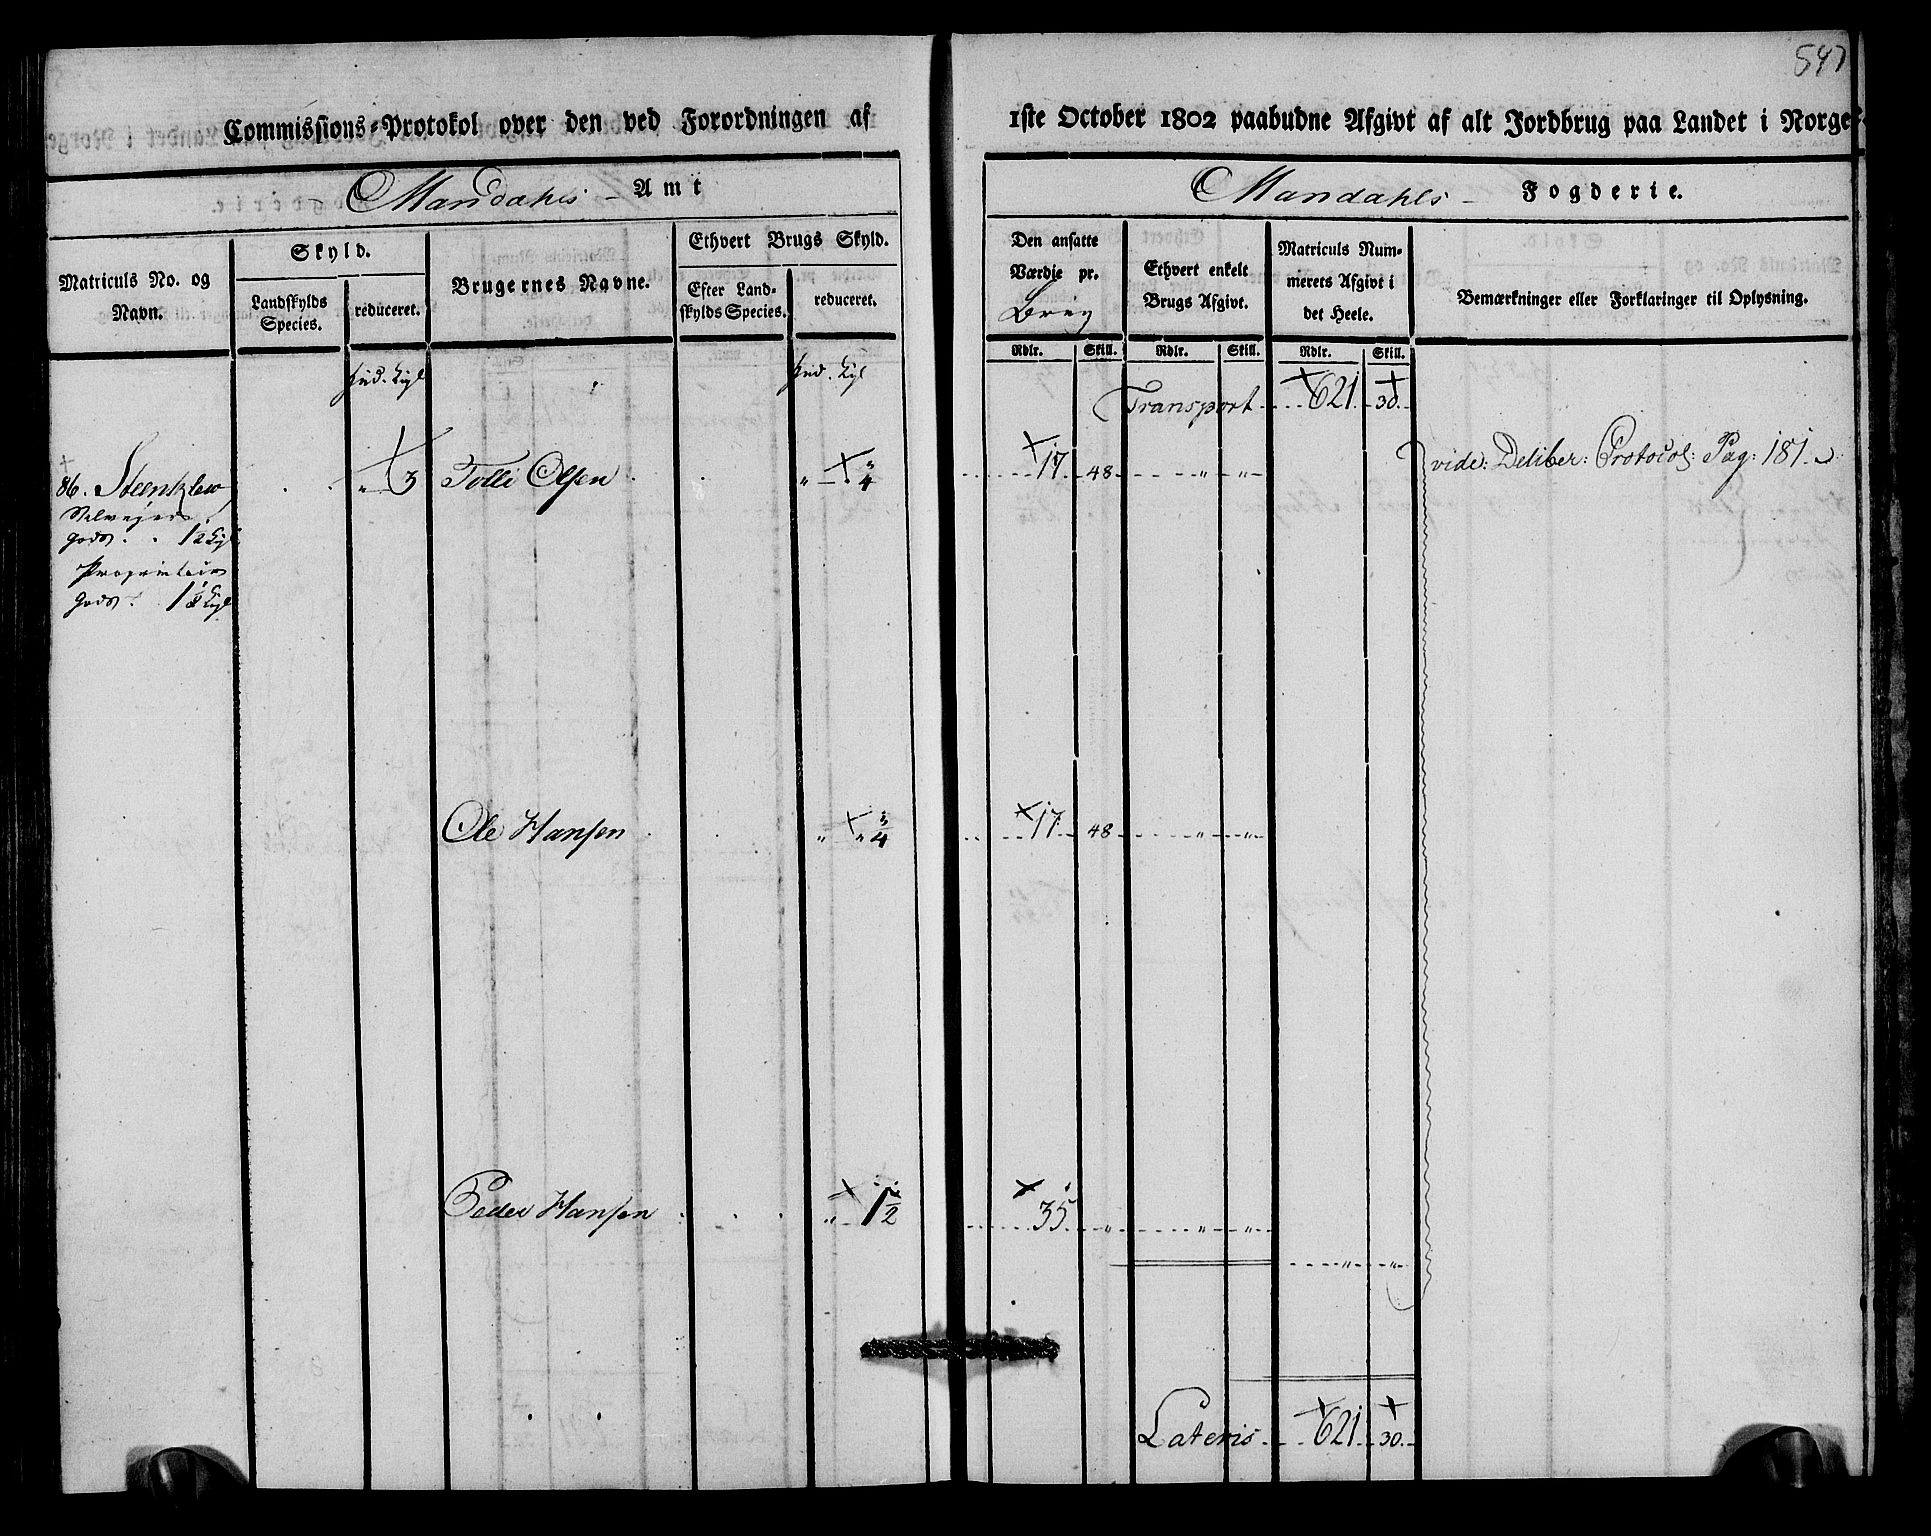 547
Commissions-Protokol over den ved Forordningen af 1ste October 1802 paabudne Afgivt af alt Jordbrug paa Landet i Norge.
Mandahls Amt
Mandahls Fogderie.
Matriculs No. og Navn.
Skyld.
Landskylds Species.
reduceret.
Brugernes Navne.
Ethvert Brugs Skyld.
Efter Landskylds Species.
reduceret.
Den ansatte Værdie pr. Brug
Ethvert enkelt Brugs Afgivt.
Matriculs Nummerets Afgivt i det Heele.
Bemærkninger eller Forklaringer til Oplysning.
Rdlr. Skill. Rdlr. Skill. Rdlr. Skill.
Hud. Kgl Hud. Kgl
Transport 621 30.
86. Steenklew " 3 Tolle Olsen " 3/4 17 48 " " vide: Deliber: Protocol: Pag: 181.
Selvejer
gods 1 2 Kgl
Proprietair
gods
Ole Hansen " " 3/4 17. 48 " "
Peder Hansen " 1 1/2 35 " " "
" "
Lateris 621 30.